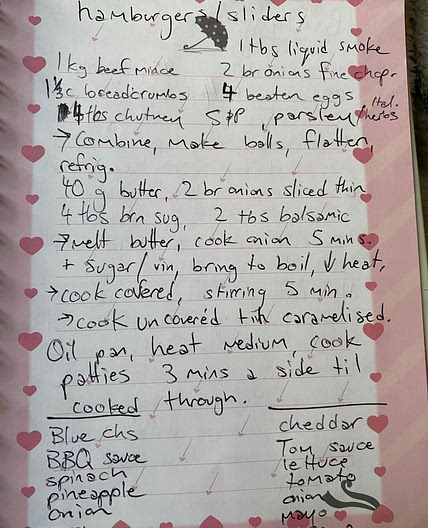 hamburgers/sliders
1 tbs liquid smoke
1 kg beef mince 2 br onions fine chop.
1⅓c breadcrumbs 4 beaten eggs
4 tbs chutney S+P, parsley/Ital. herbs
→ Combine, make balls, flatten,
refrig.
40 g butter, 2 br onions sliced thin
4 tbs brn sug, 2 tbs balsamic
→ melt butter, cook onion 5 mins.
+ sugar/vin, bring to boil, ↓ heat,
→ cook covered, stirring 5 min.
→ cook uncovered till caramelised.
Oil pan, heat medium cook
patties 3 mins a side til
cooked through.
Blue chs cheddar
BBQ sauce Tom sauce
spinach lettuce
pineapple tomato
onion onion
mayo